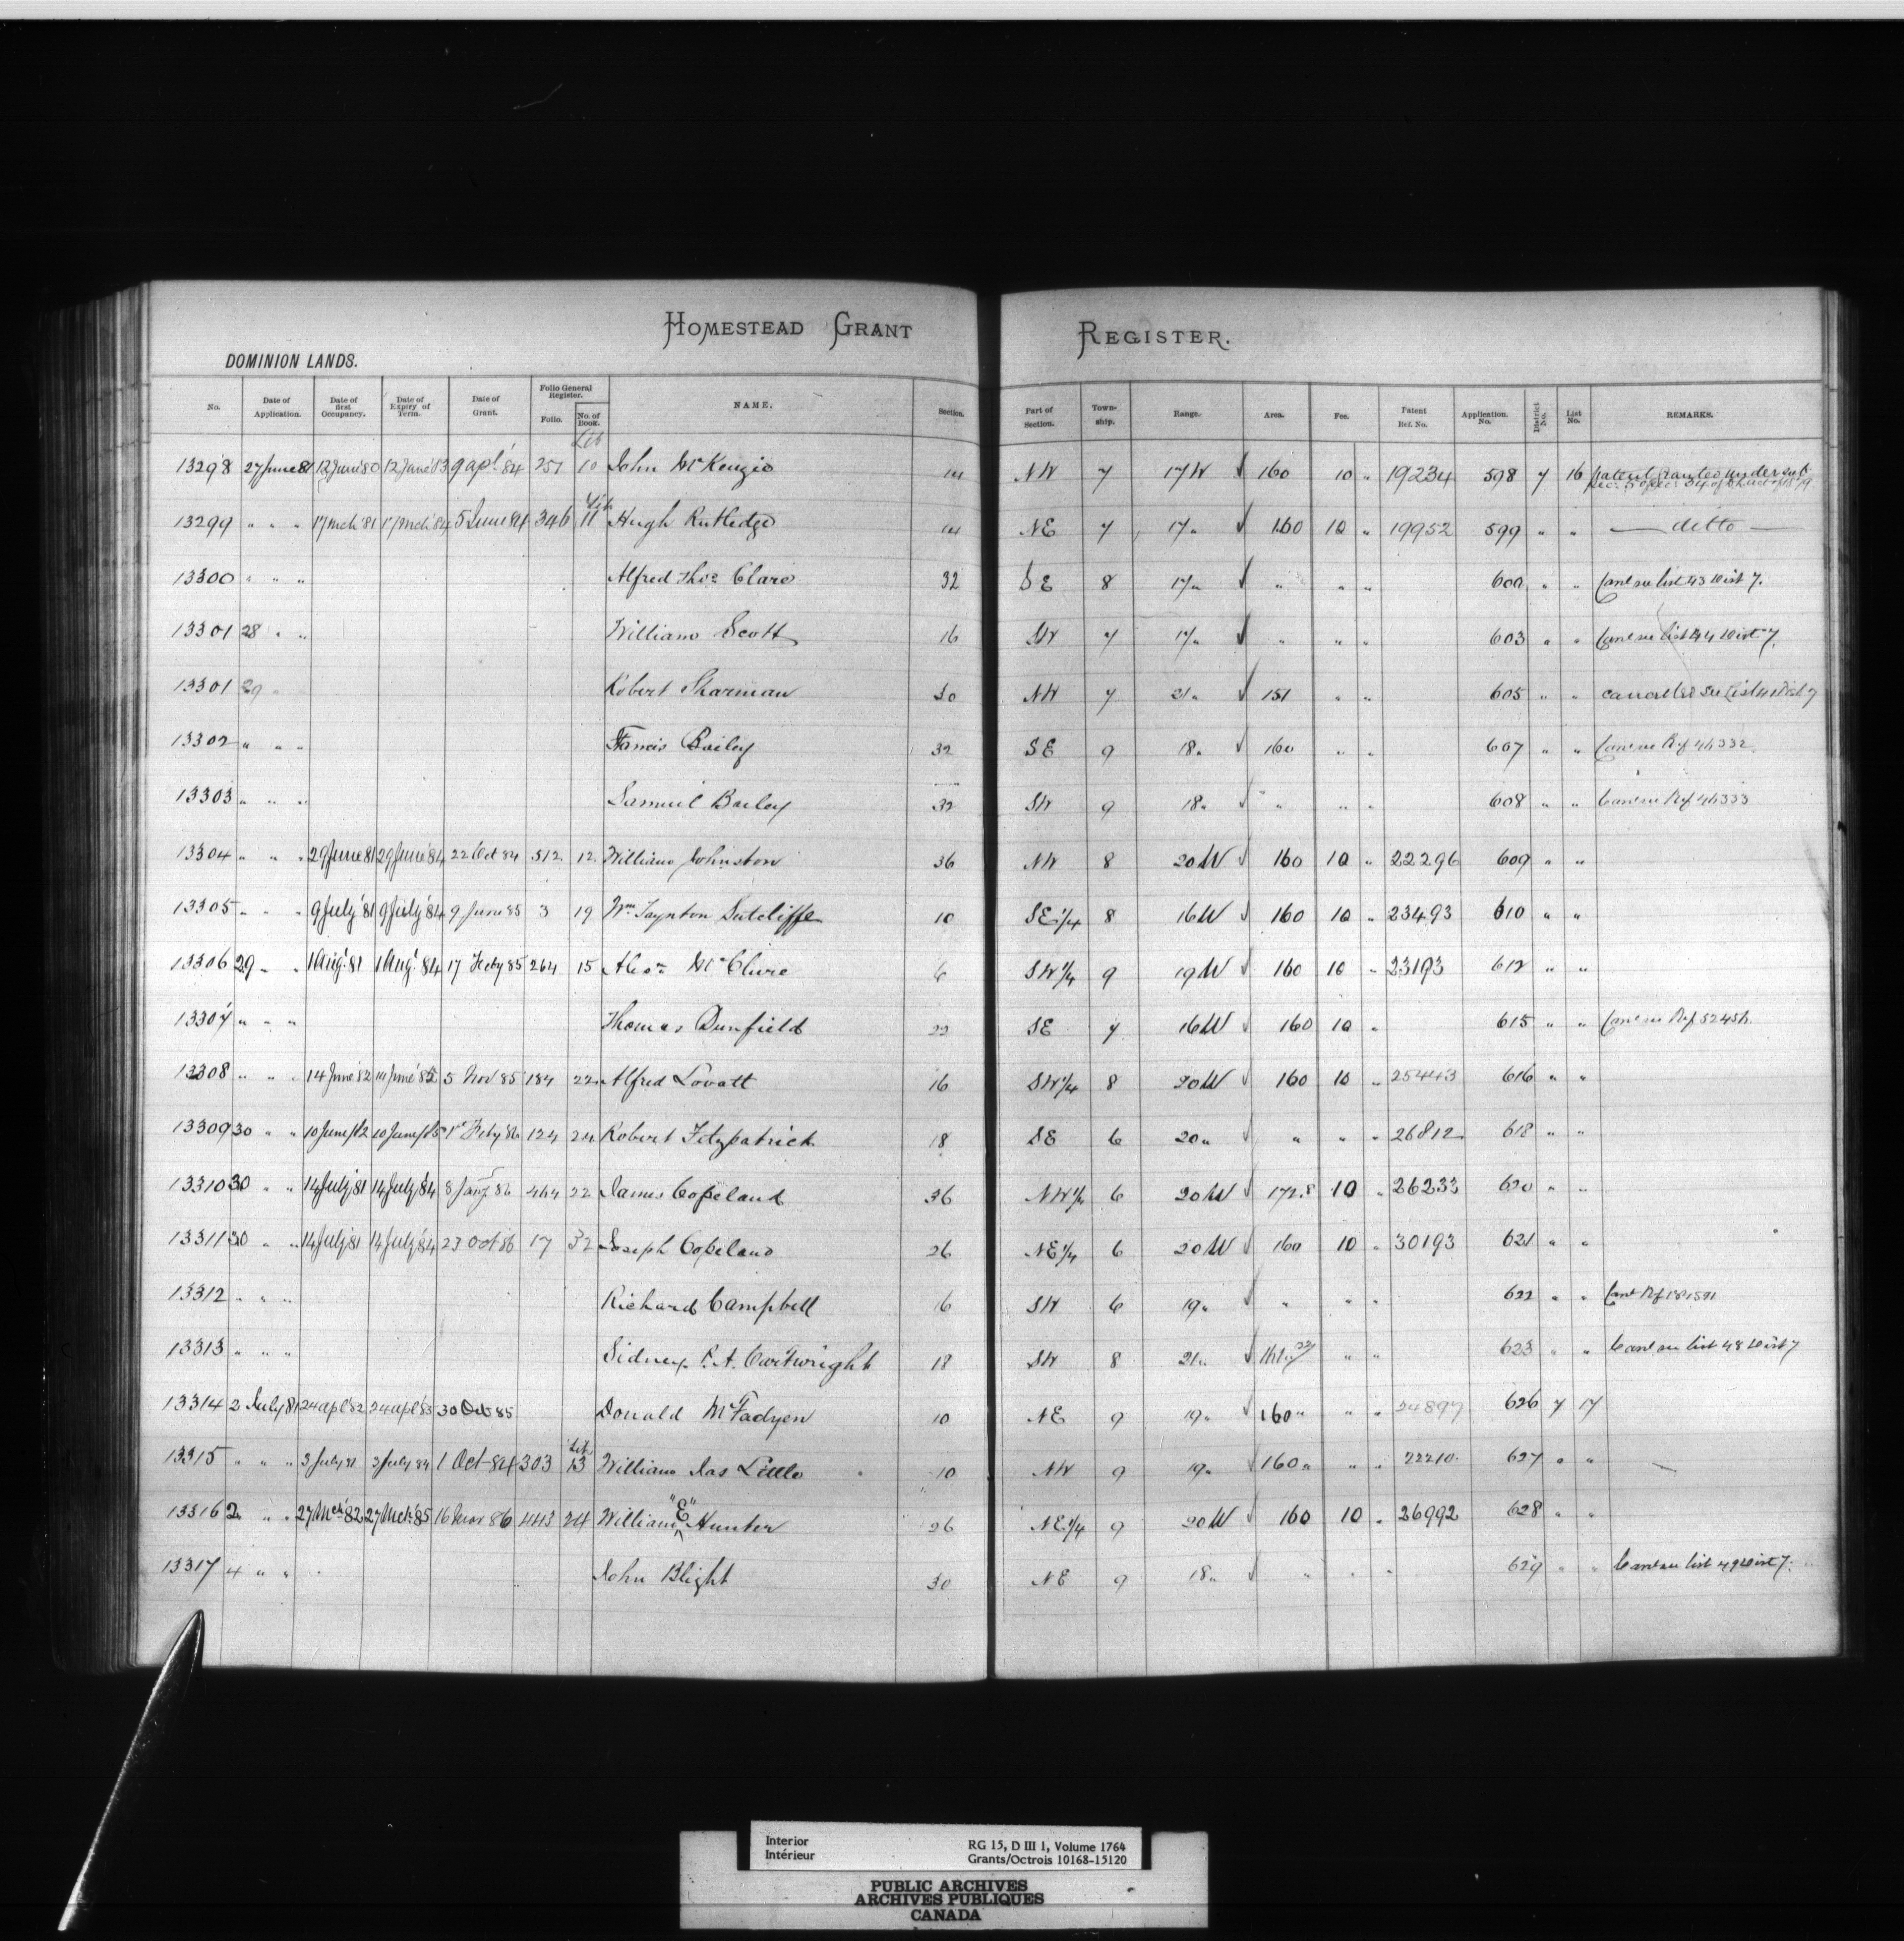 HOMESTEAD GRANT REGISTER.
DOMINION LANDS.
No. Date of Application. Date of first Occupancy. Date of Expiry of Term. Date of Grant. Folio General Register. Folio. No. of Book. NAME. Section. Part of Section. Town-ship. Range. Area. Fee. Patent Ref. No. Application. No. District No. List No. REMARKS.
Lib
13298 27 June 81 12 June '80 12 June '83 9 apl '84 251 10 John McKenzie 14 NW 7 17W 160 10 " 19234 598 7 16 patent granted under sub.
sec. 5 of sec. 34 of the act of 1879
Lib
13299 " " " 17 Mch '81 17 Mch '84 5 June 84 346 11 Hugh Rutledge 14 NE 7 17 " 160 10 " 19952 599 " " — ditto —
13300 " " " Alfred Thos Clare 32 SE 8 17 " " " " 600 " " Canl see list 43 Dist 7.
13301 28 " " William Scott 16 SW 7 17 " " " " 603 " " Canl see list 44 Dist 7
13301 29 " Robert Sharman 30 NW 7 21 " 151 " " 605 " " cancelled see List 41 Dist 7
13302 " " " Francis Bailey 32 SE 9 18 " 160 " " 607 " " Canl see Ref 44332
13303 " " " Samuel Bailey 32 SW 9 18 " " " " 608 " " Canl see Ref 44333
13304 " " " 29 June 81 29 June '84 22 Oct 84 512 12 William Johnston 36 NW 8 20W 160 10 " 22296 609 " "
13305 " " " 9 July '81 9 July '84 9 June 85 3 19 Wm Taynton Sutcliffe 10 SE 1/4 8 16W 160 10 " 23493 610 " "
13306 29 " " 1 Aug. 81 1 Aug. 84 17 Feby 85 264 15 Alexr McClure 6 SW 1/4 9 19W 160 10 " 23193 612 " "
13307 " " " Thomas Dunfield 22 SE 7 16W 160 10 " 615 " " Canl see Ref 52454
13308 " " " 14 June '82 14 June '85 5 Nov 85 184 22 Alfred Lovatt 16 SW 1/4 8 20W 160 10 " 25443 616 " "
13309 30 " " 10 June /82 10 June /85 1st Feby 86 124 24 Robert Fitzpatrick 18 SE 6 20 " " " " 26812 618 " "
13310 30 " " 14 July '81 14 July '84 8 Jany 86 464 22 James Copeland 36 NW 1/4 6 20W 172.8 10 " 26233 620 " "
13311 30 " " 14 July '81 14 July '84 23 Oct 86 17 32 Joseph Copeland 26 NE 1/4 6 20W 160 10 " 30193 621 " "
13312 " " " Richard Campbell 16 SW 6 19 " " " " 622 " " Canl Ref 181591
13313 " " " Sidney P. A. Cartwright 18 SW 8 21 " " " 623 " " Canl see list 48 Dist 7
13314 2 July 81 24 apl '82 24 apl '85 30 Oct 85 Donald McFadyen 10 NE 9 19 " 160 " " " 24897 626 7 17
Lib
13315 " " " 2 July 81 2 July 84 1 Oct 84 303 13 William Jas Little 10 NW 9 19 " 160 " " " 22210 627 " "
13316 2 " " 27 Mch '82 27 Mch '85 16 Mar 86 443 24 William "E" Hunter 26 NE 1/4 9 20W 160 10 " 26992 628 " "
13317 4 " " John Blight 30 NE 9 18 " " " " 629 " " Canl see list 49 Dist 7.
Interior
Intérieur
RG 15, D III 1, Volume 1764
Grants/Octrois 10168-15120
PUBLIC ARCHIVES
ARCHIVES PUBLIQUES
CANADA